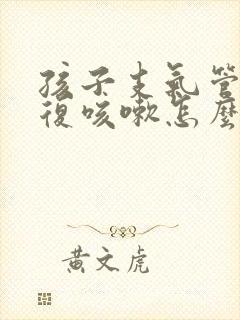 孩子支氣管
復咳嗽怎麼
黃文虎